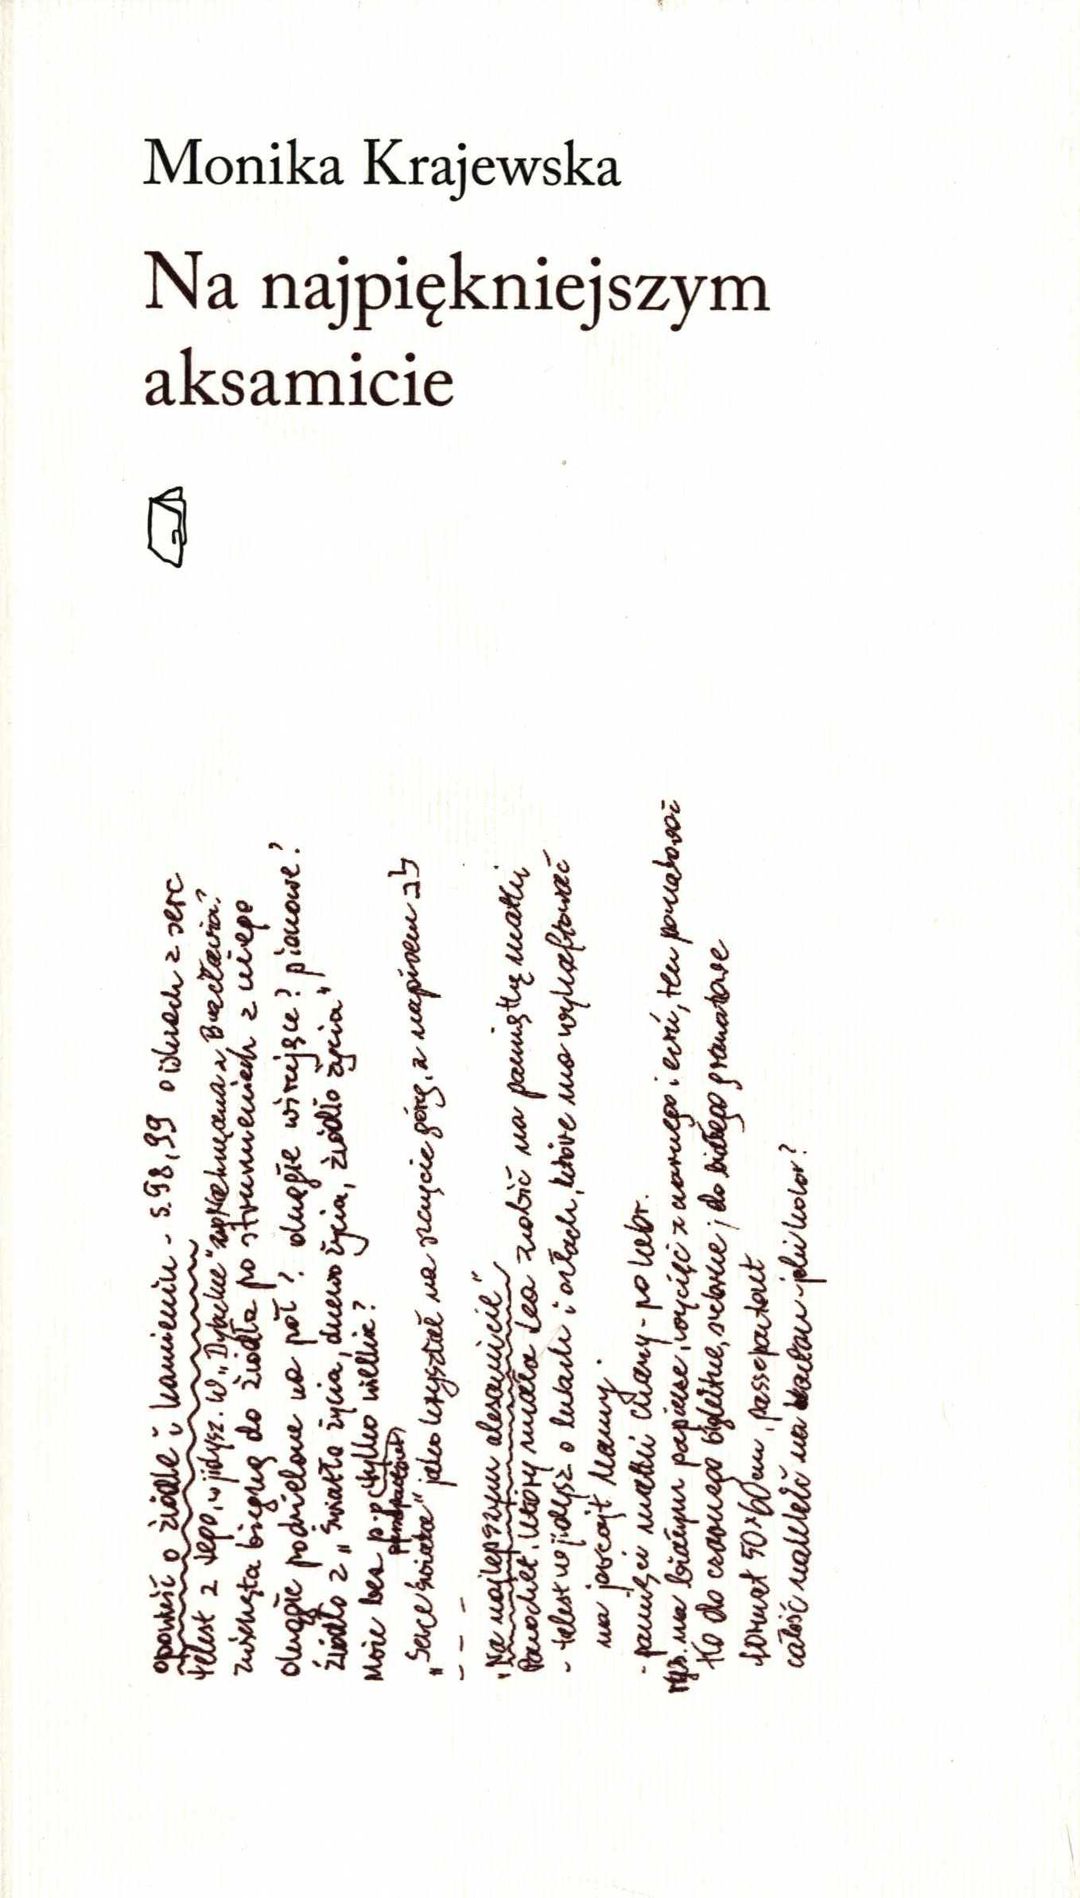 Monika Krajewska
Na najpiękniejszym
aksamicie
opowieść o źródle i kamieniu - s. 98, 99 o iskrach z serc
tekst z tego, w jidysz. W „Dybuku" z Bracławia?
zwierzęta biegną do źródła po strumieniach z niego
okrągłe podzielone na pół? okrągłe wiszące? pionowe?
źródło z „światła życia, drzewo życia, źródło życia"
Może bez p-p tylko wielkie?
„Serce świata" jako kryształ na szczycie góry, z napisem לב
- - -
„Na najlepszym aksamicie"
Parochet, który miała Lea zrobić na pamiątkę matki
- tekst w jidysz o lwach i orłach, które ma wyhaftować
na jorcajt Mamy.
- pamięci matki Chany - po hebr.
rys. na białym papierze, wyciąć z czarnego i ecru, ten pomalować
tło do czarnego błękitne, srebrne; do białego granatowe
format 50×60 cm, passepartout
całość nakleić na karton - jaki kolor?